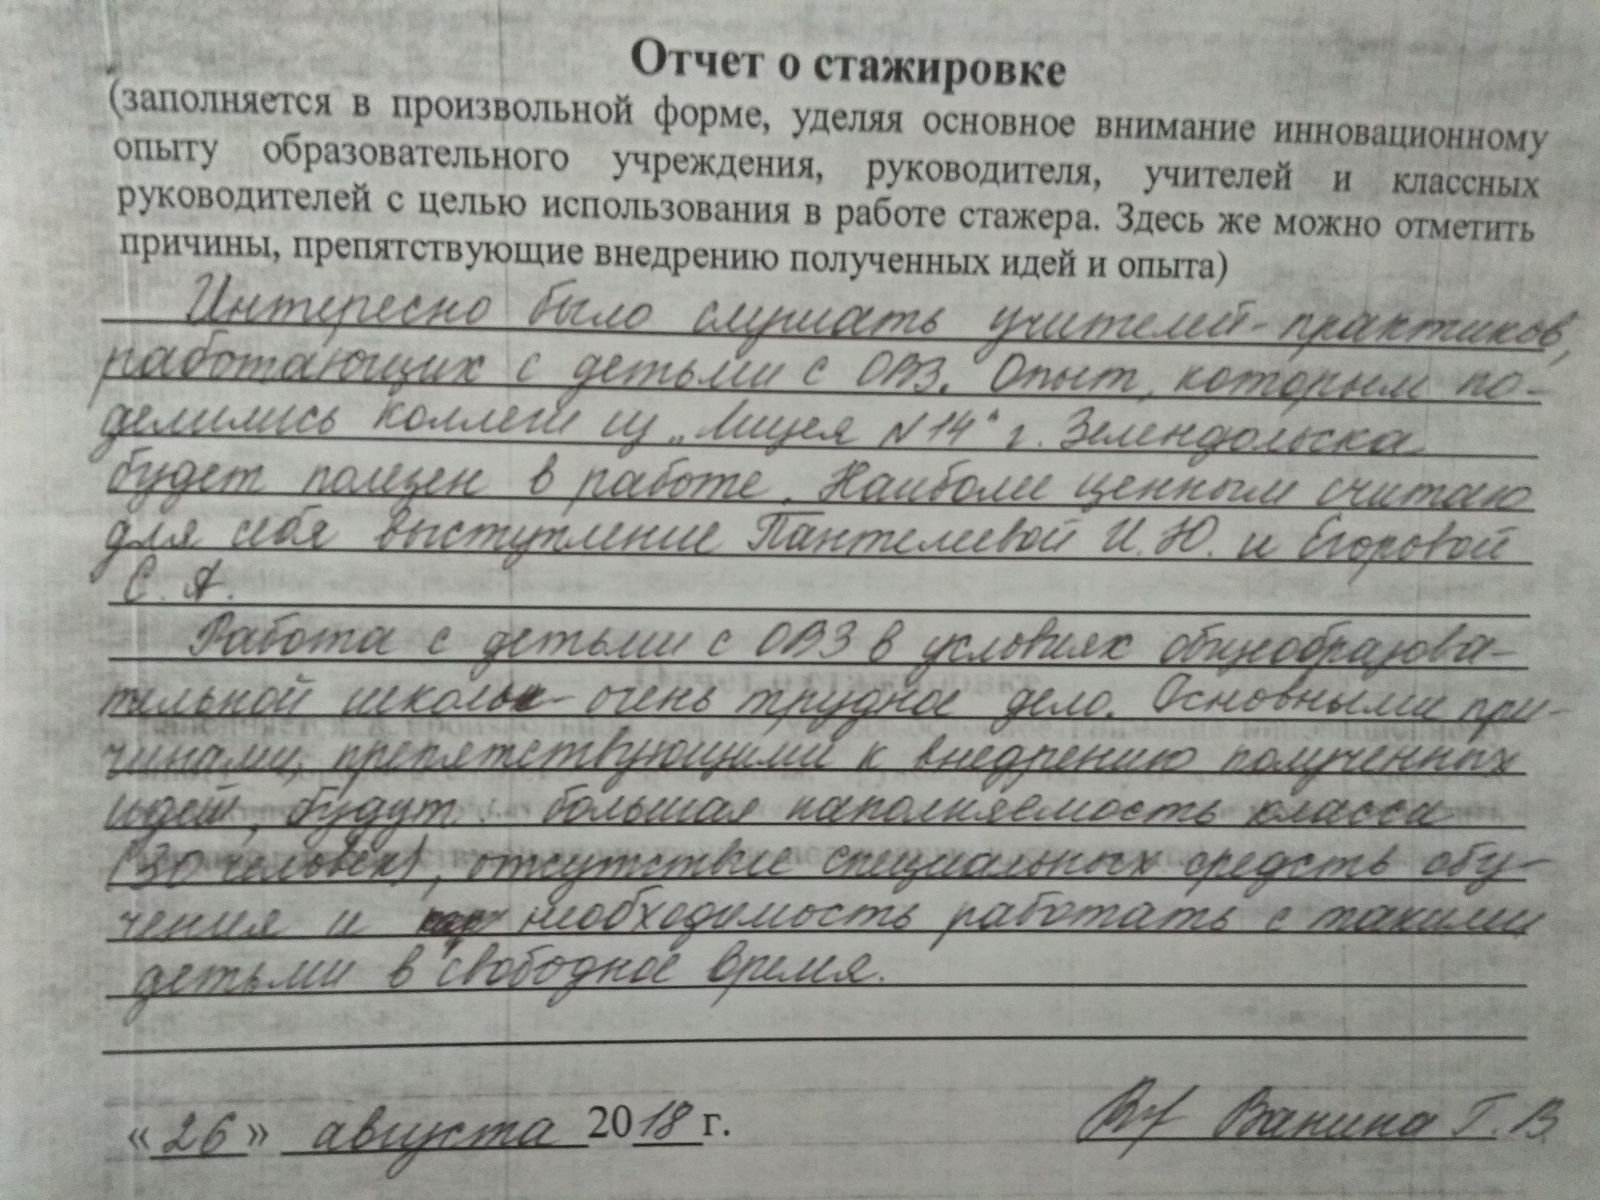 Отчет о стажировке
(заполняется в произвольной форме, уделяя основное внимание инновационному
опыту образовательного учреждения, руководителя, учителей и классных
руководителей с целью использования в работе стажера. Здесь же можно отметить
причины, препятствующие внедрению полученных идей и опыта)
Интересно было слушать учителей-практиков,
работающих с детьми с ОВЗ. Опыт, которым по-
делились коллеги из „Лицея №14" г. Зелендольска
будет полезен в работе. Наиболее ценным считаю
для себя выступление Пантелеевой И.Ю. и Егоровой
С. А.
Работа с детьми с ОВЗ в условиях общеобразова-
тельной школы - очень трудное дело. Основными при-
чинами, препятствующими к внедрению полученных
идей, будут: большая наполняемость класса
(30 человек), отсутствие специальных средств обу-
чения и необходимость работать с такими
детьми в свободное время.
«26» августа 2018 г.
Ванина Г. В.